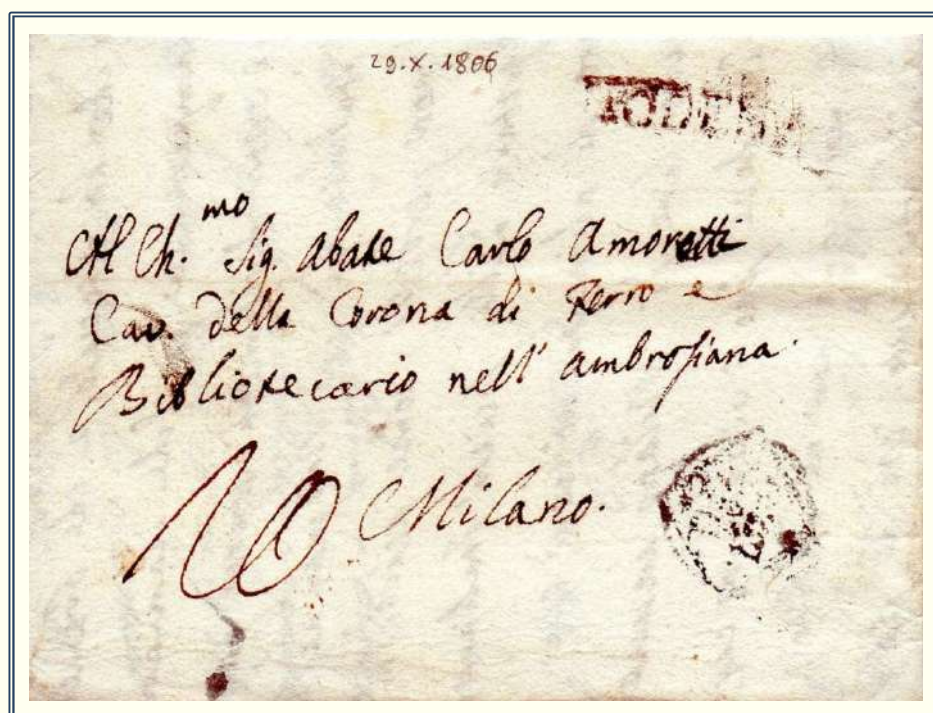 29.X.1806
MODENA
Al Ch.mo Sig. Abate Carlo Amoretti
Cav. della Corona di Ferro e
Bibliotecario nell' ambrosiana.
10 Milano.